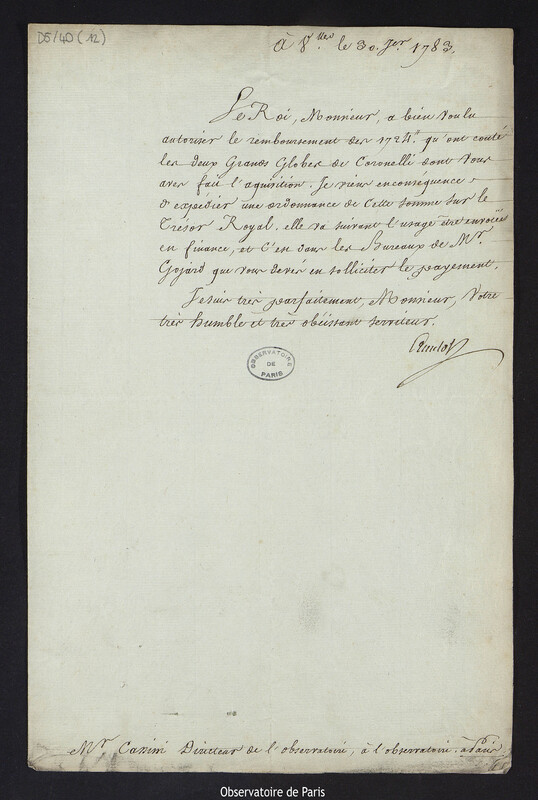 D5/40 (12)
à V.lles le 30. Jer. 1783.
Le Roi, Monsieur, a bien voulu
autoriser le remboursement des 1724.tt qu'ont couté
les deux Grands Globes de Coronelli dont vous
avez fait l'aquisition. Je viens enconséquence
d'expédier une ordonnance de Cette somme sur le
Trésor Royal. elle va suivant l'usage être envoiée
en finance, et C'est dans les Bureaux de Mr.
Gojard que vous devés en solliciter le payement.
Je suis très parfaitement, Monsieur, Votre
très humble et très obéissant serviteur.
OBSERVATOIRE
DE
PARIS
Mr. Cassini Directeur de l'observatoire, à l'observatoire. à Paris
Observatoire de Paris